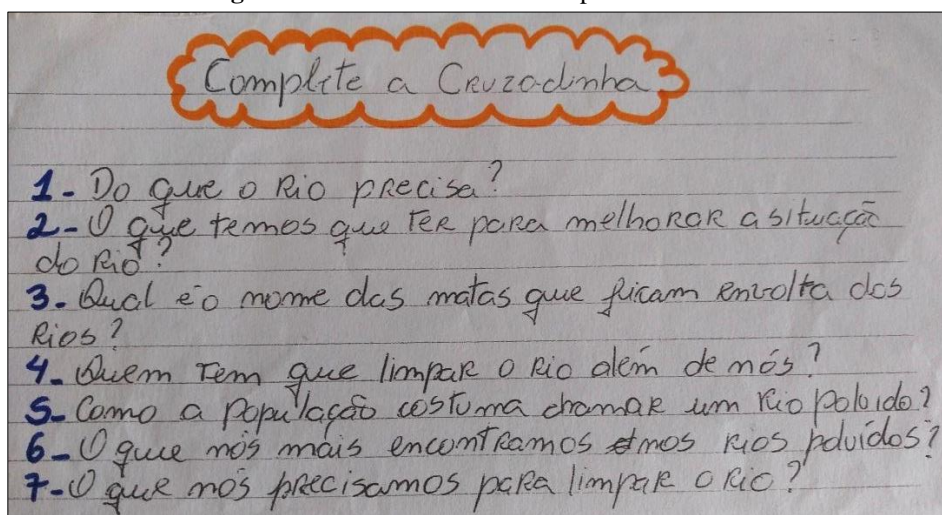 Complete a Cruzadinha
1- Do que o Rio precisa?
2- O que temos que ter para melhorar a situação
do Rio?
3- Qual é o nome das matas que ficam envolta dos
Rios?
4- Quem tem que limpar o Rio além de nós?
5- Como a População costuma chamar um Rio Poloido?
6- O que nós mais encontramos nos rios poluídos?
7- O que nós precisamos para limpar o Rio?